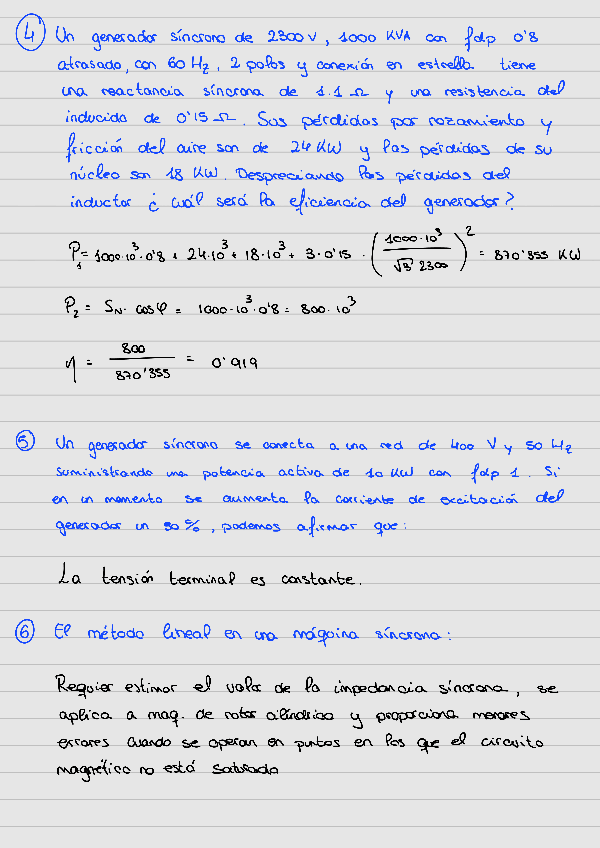 4 Un generador síncrono de 2300 V, 1000 KVA con fdp 0'8
atrasado, con 60 Hz, 2 polos y conexión en estrella tiene
una reactancia síncrona de 1.1 Ω y una resistencia del
inducido de 0'15 Ω. Sus pérdidas por rozamiento y
fricción del aire son de 24 KW y las pérdidas de su
núcleo son 18 KW. Despreciando las pérdidas del
inductor ¿ cuál será la eficiencia del generador?
P₁ = 1000·10³·0'8 + 24·10³ + 18·10³ + 3·0'15 · (1000·10³ / √3 2300)² = 870'355 KW
P₂ = S_N · cos φ = 1000·10³·0'8 = 800·10³
η = 800 / 870'355 = 0'919
5 Un generador síncrono se conecta a una red de 400 V y 50 Hz
suministrando una potencia activa de 10 KW con fdp 1. Si
en un momento se aumenta la corriente de excitación del
generador un 50%, podemos afirmar que:
La tensión terminal es constante.
6 El método lineal en una máquina síncrona:
Requier estimar el valor de la impedancia síncrona, se
aplica a maq. de rotor cilíndrico y proporciona menores
errores cuando se operan en puntos en los que el circuito
magnético no está saturado